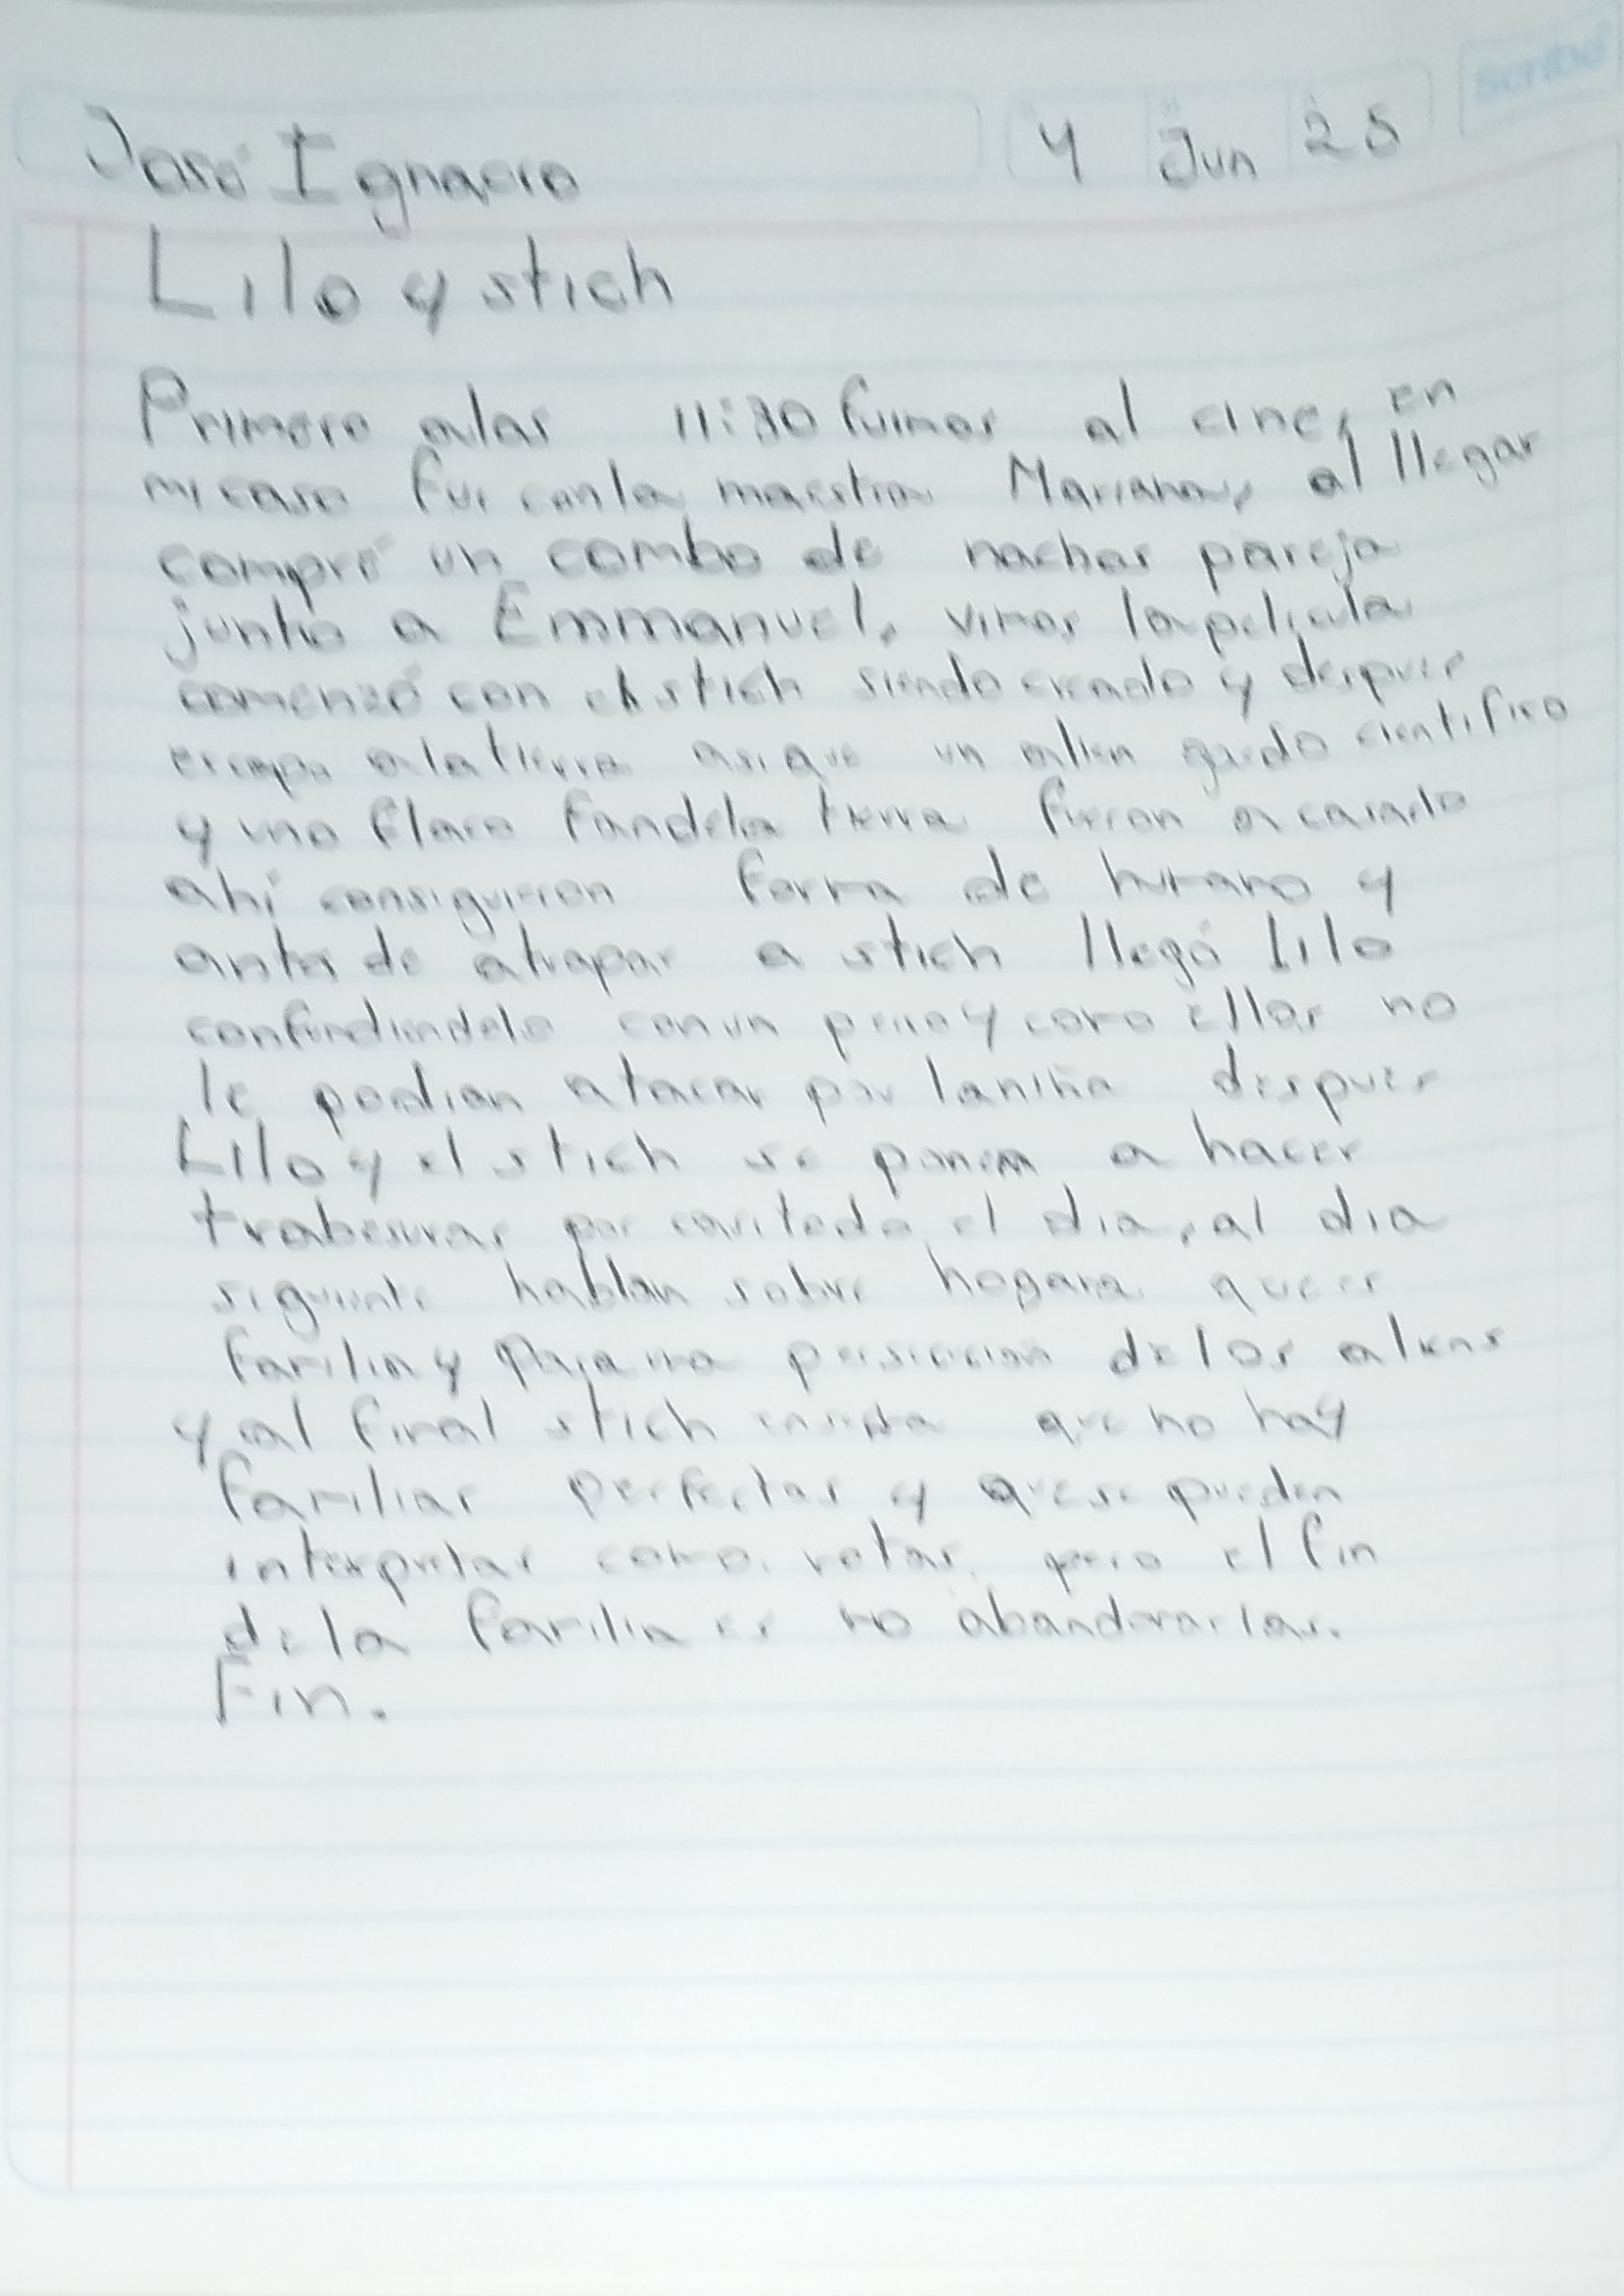 Scribe
José Ignacio 4 Jun 25
Lilo y stich
Primero alas 11:30 fuimos al cine, en
mi caso fui conla maestra Mariana, al llegar
compré un combo de nachos pareja
junto a Emmanuel, vimos lapelicula
comenzó con el stich siendo creado y despues
escapo alatierra asique un alien gordo cientifico
y uno flaco fandela tierra fueron a casarlo
ahí consiguieron forma de humano y
antes de atrapar a stich llegó lilo
confundiendolo conun perro y como ellos no
le podian atacar por laniña despues
Lilo y el stich se ponen a hacer
trabesuras por casitodo el dia, al dia
siguiente hablan sobre hogara que es
familia y pasa una de los aliens
y al final stich enseña que no hay
familias perfectas y quese pueden
interpretar como rotas, pero el fin
dela familia es no abandonarlas.
Fin.